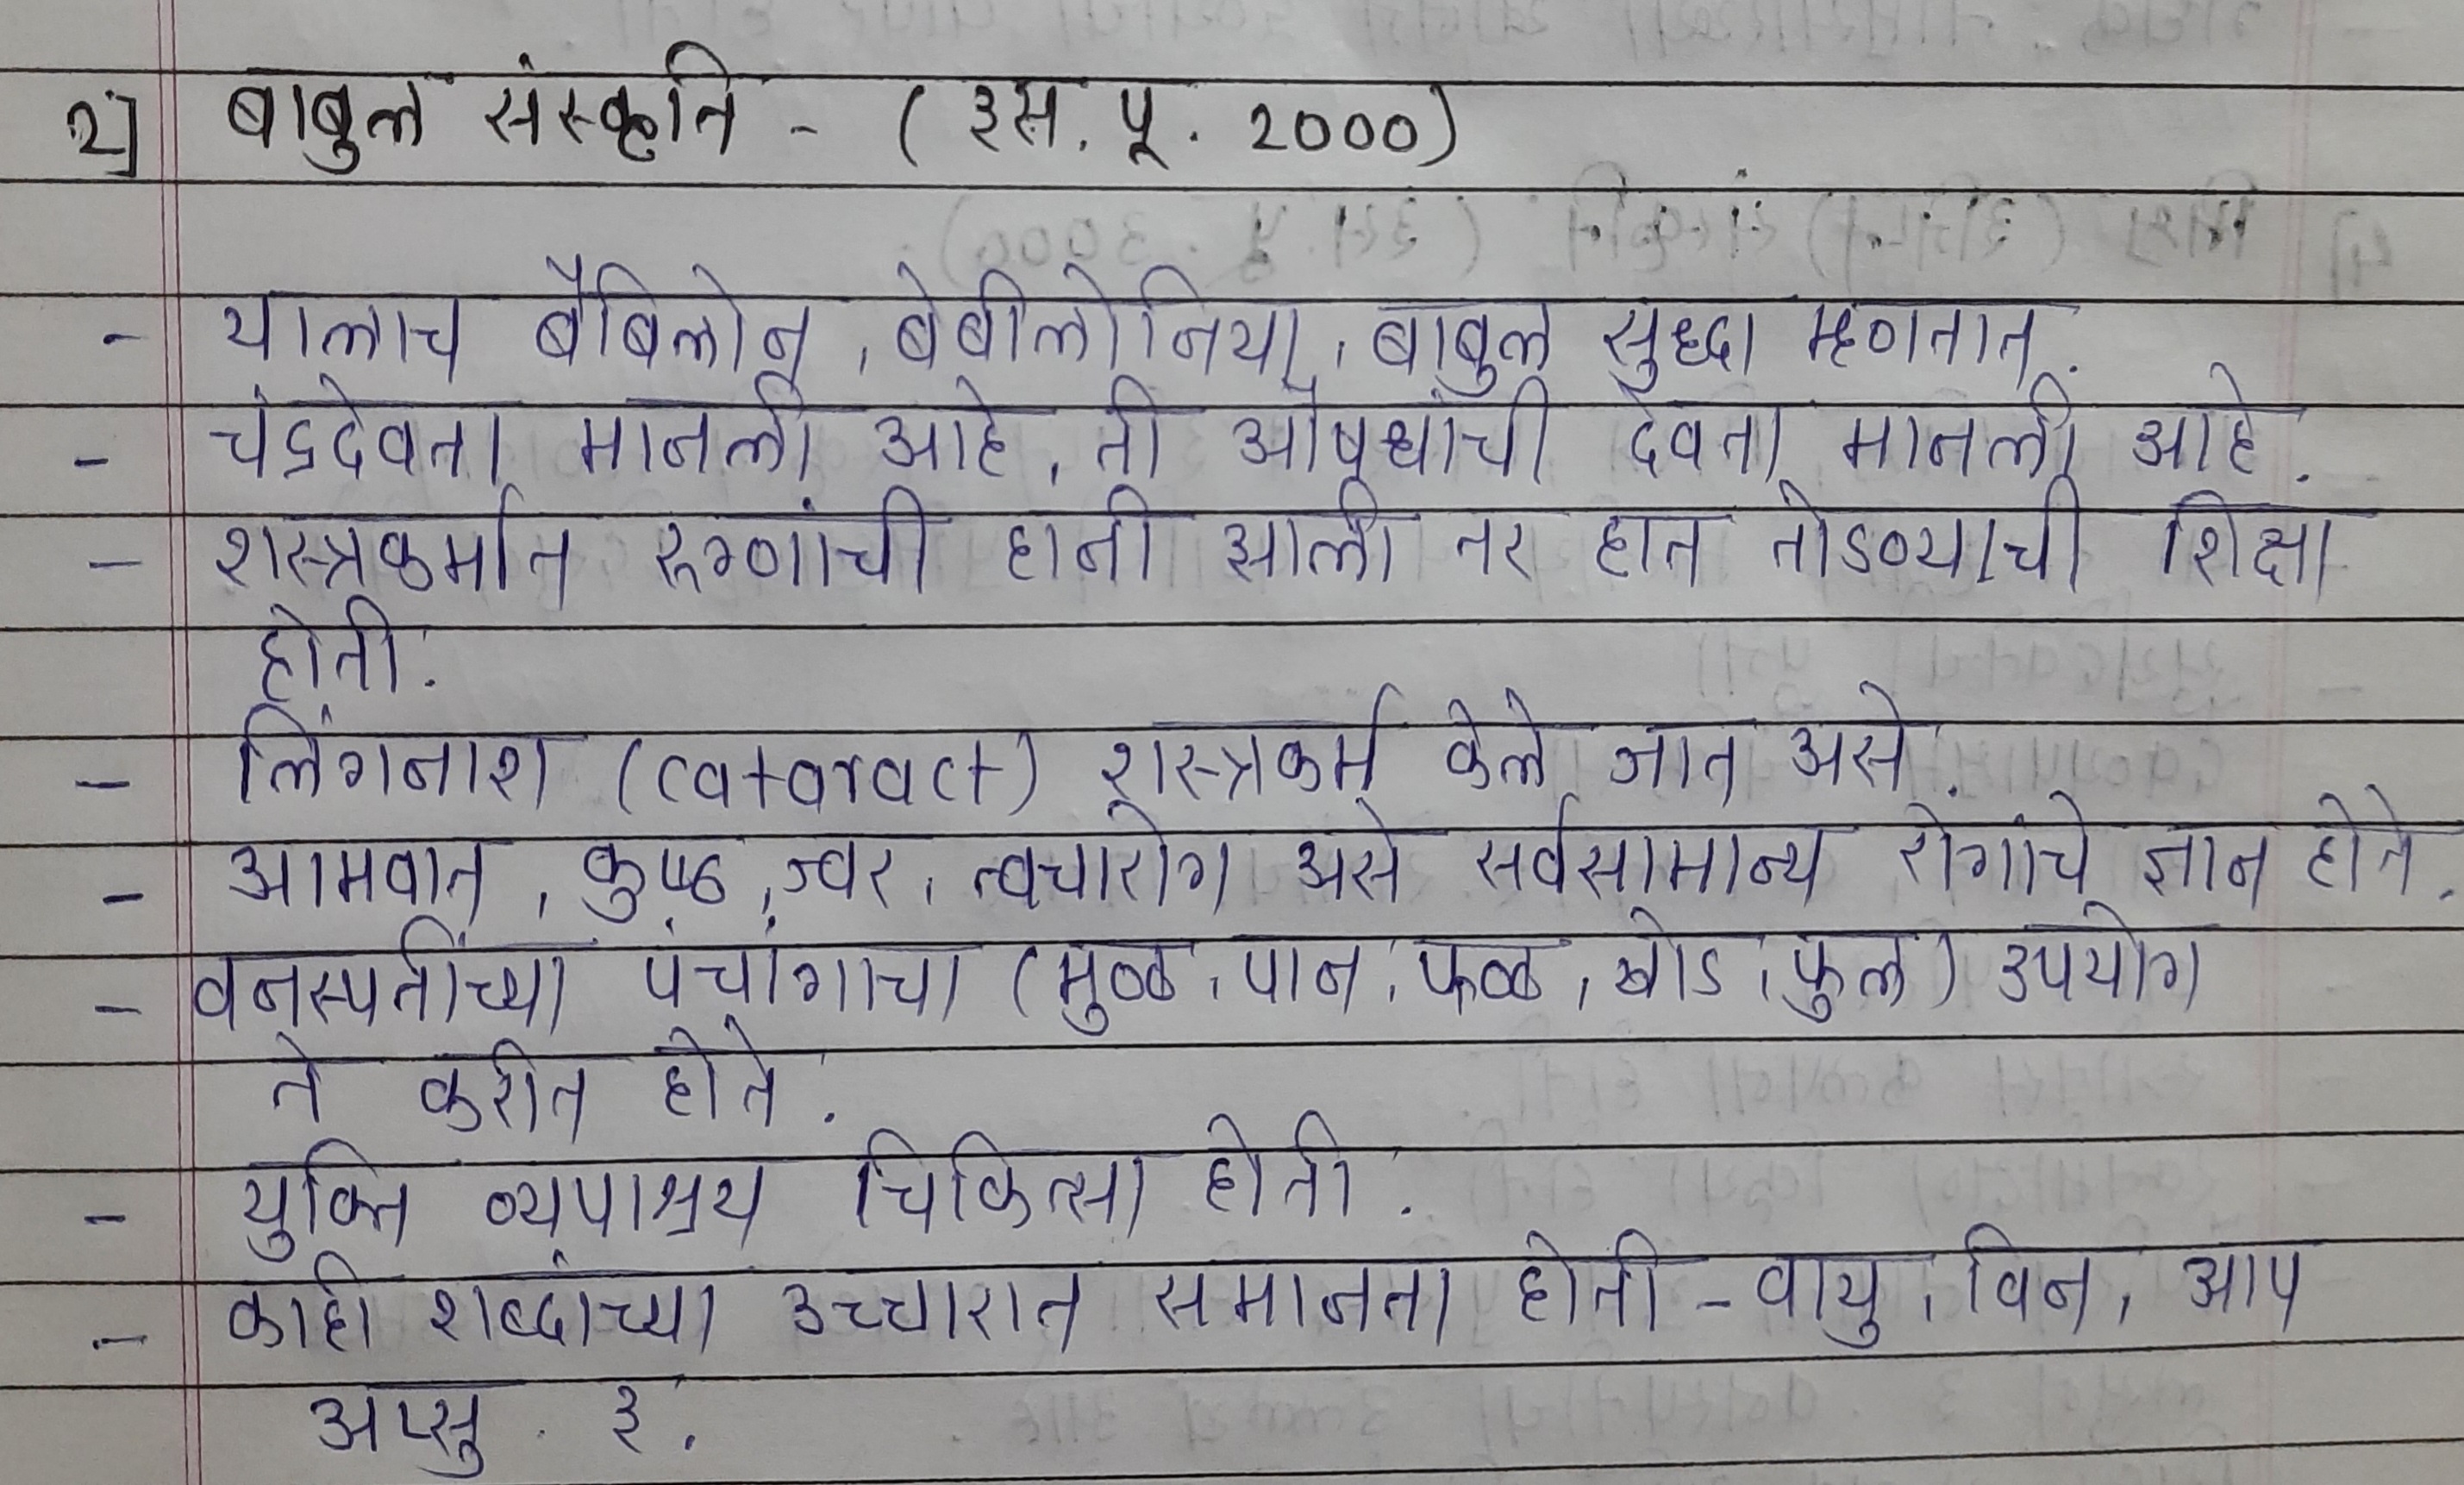 2] बाबुल संस्कृति - (इस. पू. 2000)
- यालाच बॅबिलोन, बेबीलोनिया, बाबुल सुध्दा म्हणतात.
- चंद्रदेवता मानली आहे, ती औषधांची देवता मानली आहे.
- शस्त्रकर्मात रुग्णांची हानी झाली तर हात तोडण्याची शिक्षा
होती.
- लिंगनाश (catoract) शस्त्रकर्म केले जात असे.
- आमवात, कुष्ठ, ज्वर, त्वचारोग असे सर्वसामान्य रोगांचे ज्ञान होते.
- वनस्पतींच्या पंचांगाचा (मुळ, पान, फळ, खोड, फुल) उपयोग
ते करीत होते.
- युक्ति व्यपाश्रय चिकित्सा होती.
- काही शब्दांच्या उच्चारात समानता होती - वायु, विन, आप
अप्सु. इ.